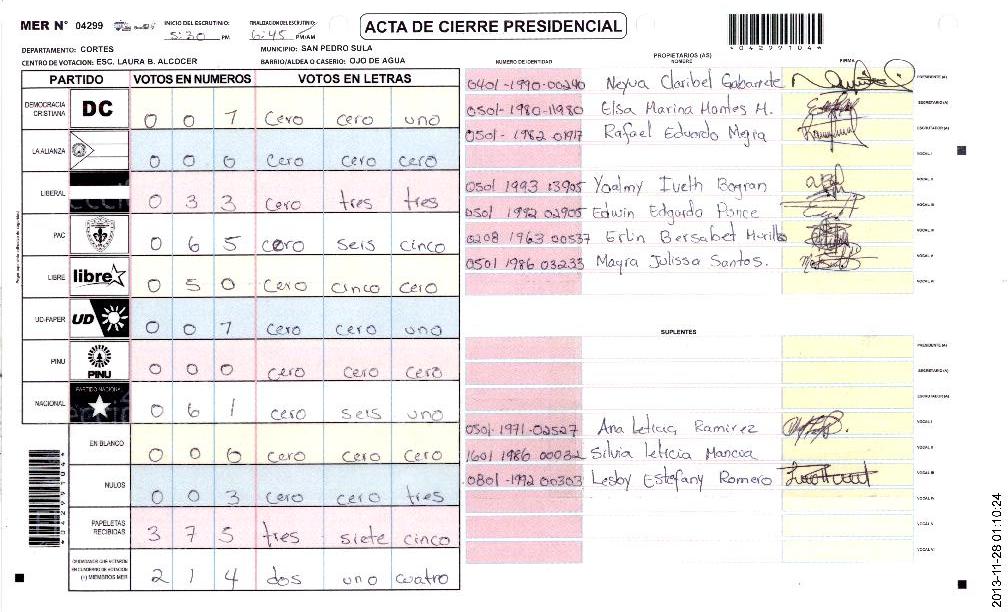 MER Nº 04299 INICIO DEL ESCRUTINIO: 5:30 PM FINALIZACION DEL ESCRUTINIO: 6:45 PM/AM
ACTA DE CIERRE PRESIDENCIAL
04299104
DEPARTAMENTO: CORTES MUNICIPIO: SAN PEDRO SULA
CENTRO DE VOTACION: ESC. LAURA B. ALCOCER BARRIO/ALDEA O CASERIO: OJO DE AGUA
PARTIDO VOTOS EN NUMEROS VOTOS EN LETRAS
DEMOCRACIA CRISTIANA DC 0 0 1 cero cero uno
LA ALIANZA 0 0 0 cero cero cero
LIBERAL 0 3 3 cero tres tres
PAC 0 6 5 cero seis cinco
LIBRE libre 0 5 0 cero cinco cero
UD-FAPER UD 0 0 1 cero cero uno
PINU PINU 0 0 0 cero cero cero
NACIONAL PARTIDO NACIONAL 0 6 1 cero seis uno
EN BLANCO 0 0 0 cero cero cero
NULOS 0 0 3 cero cero tres
PAPELETAS RECIBIDAS 3 7 5 tres siete cinco
CIUDADANOS QUE VOTARON EN CUADERNO DE VOTACION (+) MIEMBROS MER 2 1 4 dos uno cuatro
PROPIETARIOS (AS)
NUMERO DE IDENTIDAD NOMBRE FIRMA
0401-1990-00240 Claribel PRESIDENTE (A)
0501-1980-11980 Elsa Marina Montes H. SECRETARIO (A)
0501-1982-01917 Rafael Eduardo Mejra ESCRUTADOR (A)
VOCAL I
0501 1993 13905 Yoalmy Iveth Bogran VOCAL II
0501 1992 02905 Edwin Edgardo Ponce VOCAL III
0208 1963 00537 Erlin Bersabet Murillo VOCAL IV
0501 1986 03233 Mayra Julissa Santos. VOCAL V
VOCAL VI
SUPLENTES
PRESIDENTE (A)
SECRETARIO (A)
ESCRUTADOR (A)
0501-1971-02527 Ana Leticia Ramirez VOCAL I
1601 1986 00032 Silvia leticia Mancia VOCAL II
0801-1992 00303 Lesby Estefany Romero VOCAL III
VOCAL IV
VOCAL V
VOCAL VI
2013-11-28 01:10:24